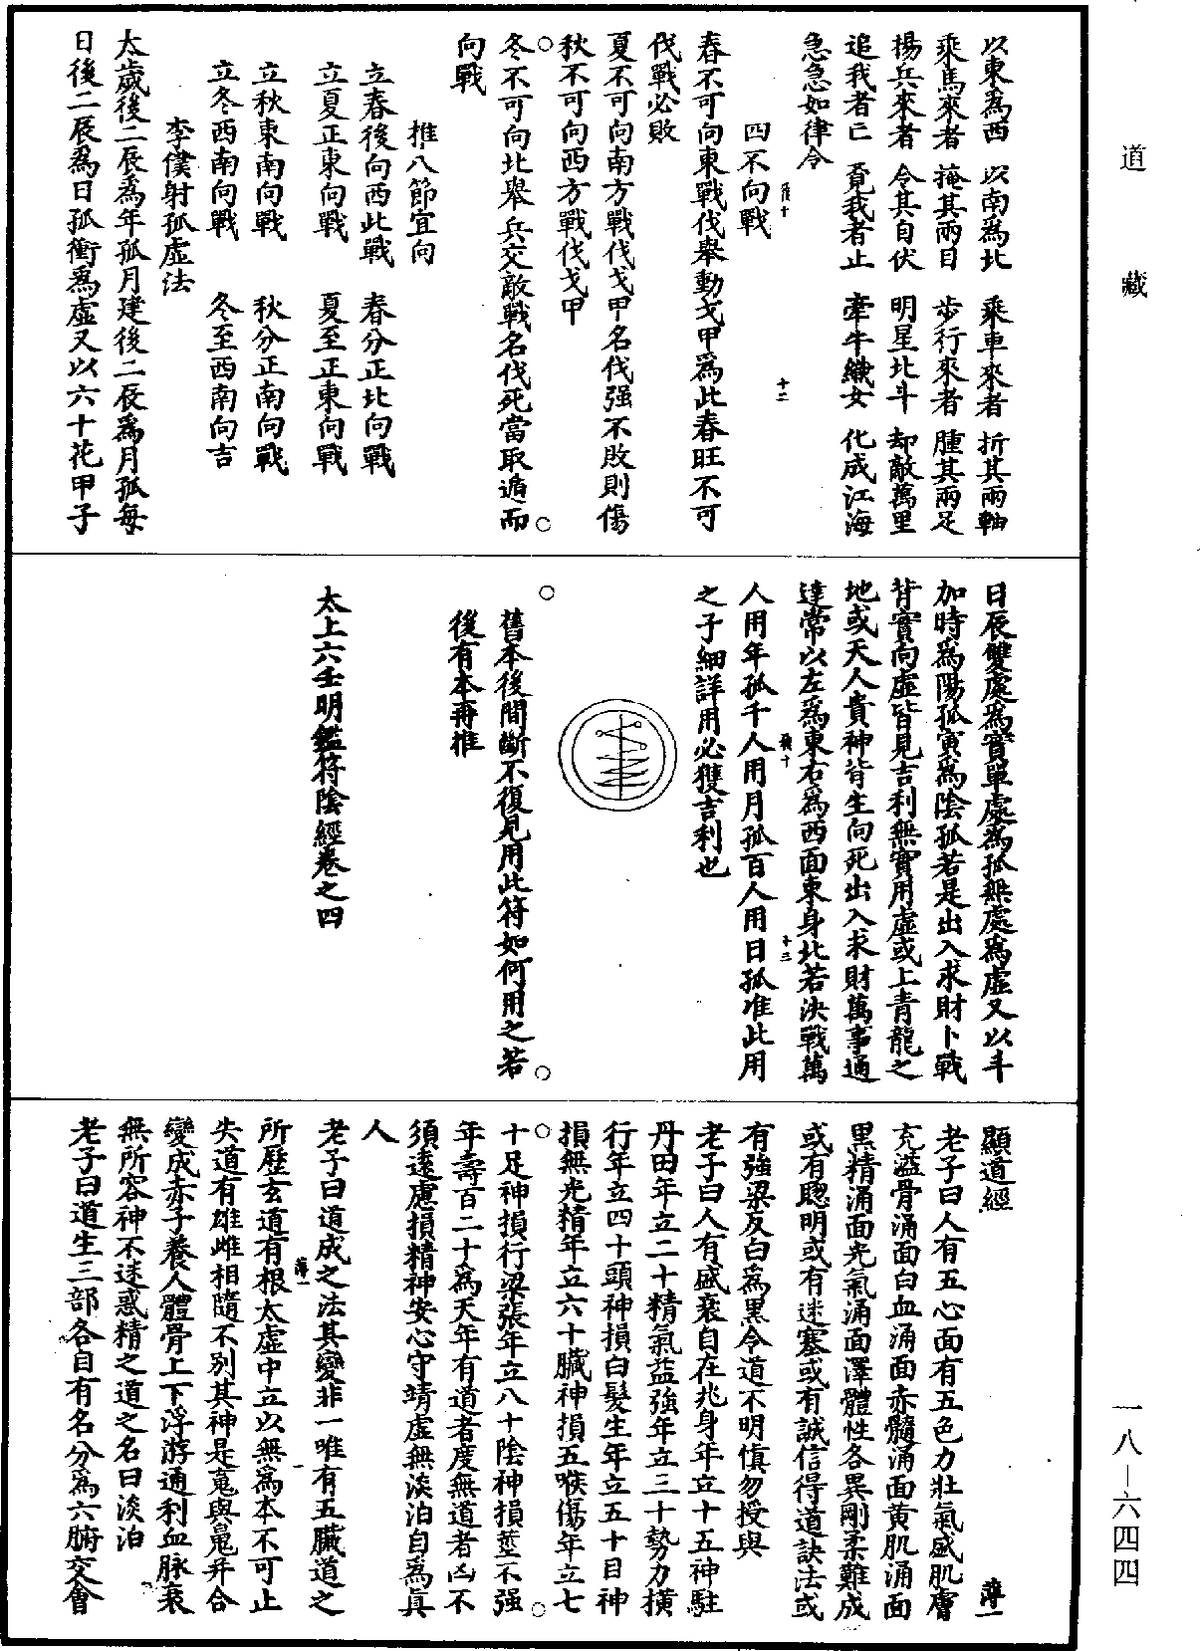 道藏
以東爲西 以南爲北 乘車來者 折其兩軸
乘馬來者 掩其兩目 步行來者 腫其兩足
揚兵來者 令其自伏 明星北斗 却敵萬里
追我者亡 覓我者止 牽牛織女 化成江海
急急如律令
四不向戰
春不可向東戰伐舉動戈甲爲此春旺不可
伐戰必敗
夏不可向南方戰伐戈甲名伐强不敗則傷
秋不可向西方戰伐戈甲
冬不可向北舉兵交敵戰名伐死當取遁而
向戰
推八節宜向
立春後向西北戰 春分正北向戰
立夏正東向戰 夏至正東向戰
立秋東南向戰 秋分正南向戰
立冬西南向戰 冬至西南向吉
李僕射孤虛法
太歲後二辰爲年孤月建後二辰爲月孤每
日後二辰爲日孤衝爲虛又以六十花甲子
日辰雙處爲實單處爲孤無處爲虛又以斗
加時爲陽孤寅爲陰孤若是出入求財卜戰
背實向虛皆見吉利無實用虛或上青龍之
地或天人貴神背生向死出入求財萬事通
達常以左爲東右爲西面東身北若決戰萬
人用年孤千人用月孤百人用日孤准此用
之子細詳用必獲吉利也
舊本後間斷不復見用此符如何用之若
後有本再推
太上六壬明鑑符陰經卷之四
顯道經
薄一
老子曰人有五心面有五色力壯氣盛肌膚
充溢骨涌面白血涌面赤髓涌面黄肌涌面
黑精涌面光氣涌面澤體性各異剛柔難成
或有聰明或有迷塞或有誠信得道訣法或
有強梁反白爲黑令道不明慎勿授與
老子曰人有盛衰自在兆身年立十五神駐
丹田年立二十精氣益強年立三十勢力橫
行年立四十頭神損白髮生年立五十目神
損無光精年立六十臟神損五喉傷年立七
十足神損行梁張年立八十陰神損莖不强
年壽百二十爲天年有道者度無道者凶不
須遠慮損精神安心守靖虛無淡泊自爲眞
人
老子曰道成之法其變非一唯有五臟道之
所歷玄道有根太虛中立以無爲本不可止
失道有雄雌相隨不別其神是蒐與鬼并合
變成赤子養人體骨上下浮游通利血脉衰
無所容神不迷惑精之道之名曰淡泊
老子曰道生三部各自有名分爲六腑交會
一八—六四四